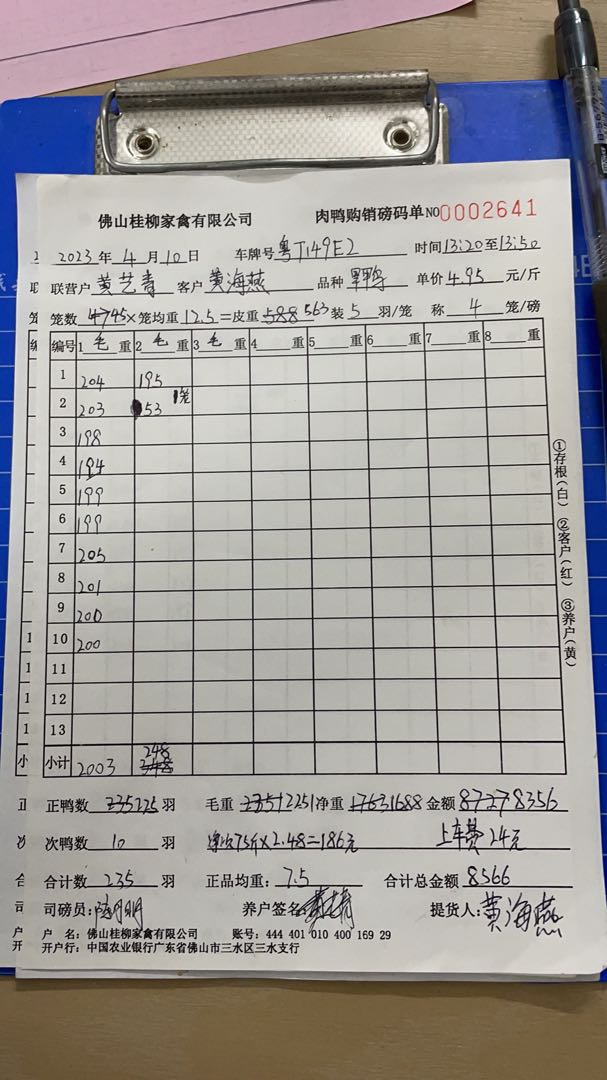 佛山桂柳家禽有限公司 肉鸭购销磅码单 NO 0002641
2023年4月10日 车牌号 粤T149E2 时间 13:20至13:50
联营户 黄艺青 客户 黄海燕 品种 单价 4.95 元/斤
笼数 47 45 ×笼均重 12.5 =皮重 588 563 装 5 羽/笼 称 4 笼/磅
编号 1 毛 重 2 毛 重 3 毛 重 4 重 5 重 6 重 7 重 8 重
1 204 195
2 203 53 1笼
3 198
4 194
5 199
6 199
7 205
8 201
9 200
10 200
11
12
13
小计 2003 248
正鸭数 235 225 羽 毛重 2351 2251 净重 1763 1688 金额 8727 8356
次鸭数 10 羽 75斤×2.48=186元 上车费24元
合计数 235 羽 正品均重: 7.5 合计总金额 8566
司磅员: 养户签名: 提货人: 黄海燕
户 名: 佛山桂柳家禽有限公司 账号: 444 401 010 400 169 29
开户行: 中国农业银行广东省佛山市三水区三水支行
①存根(白) ②客户(红) ③养户(黄)